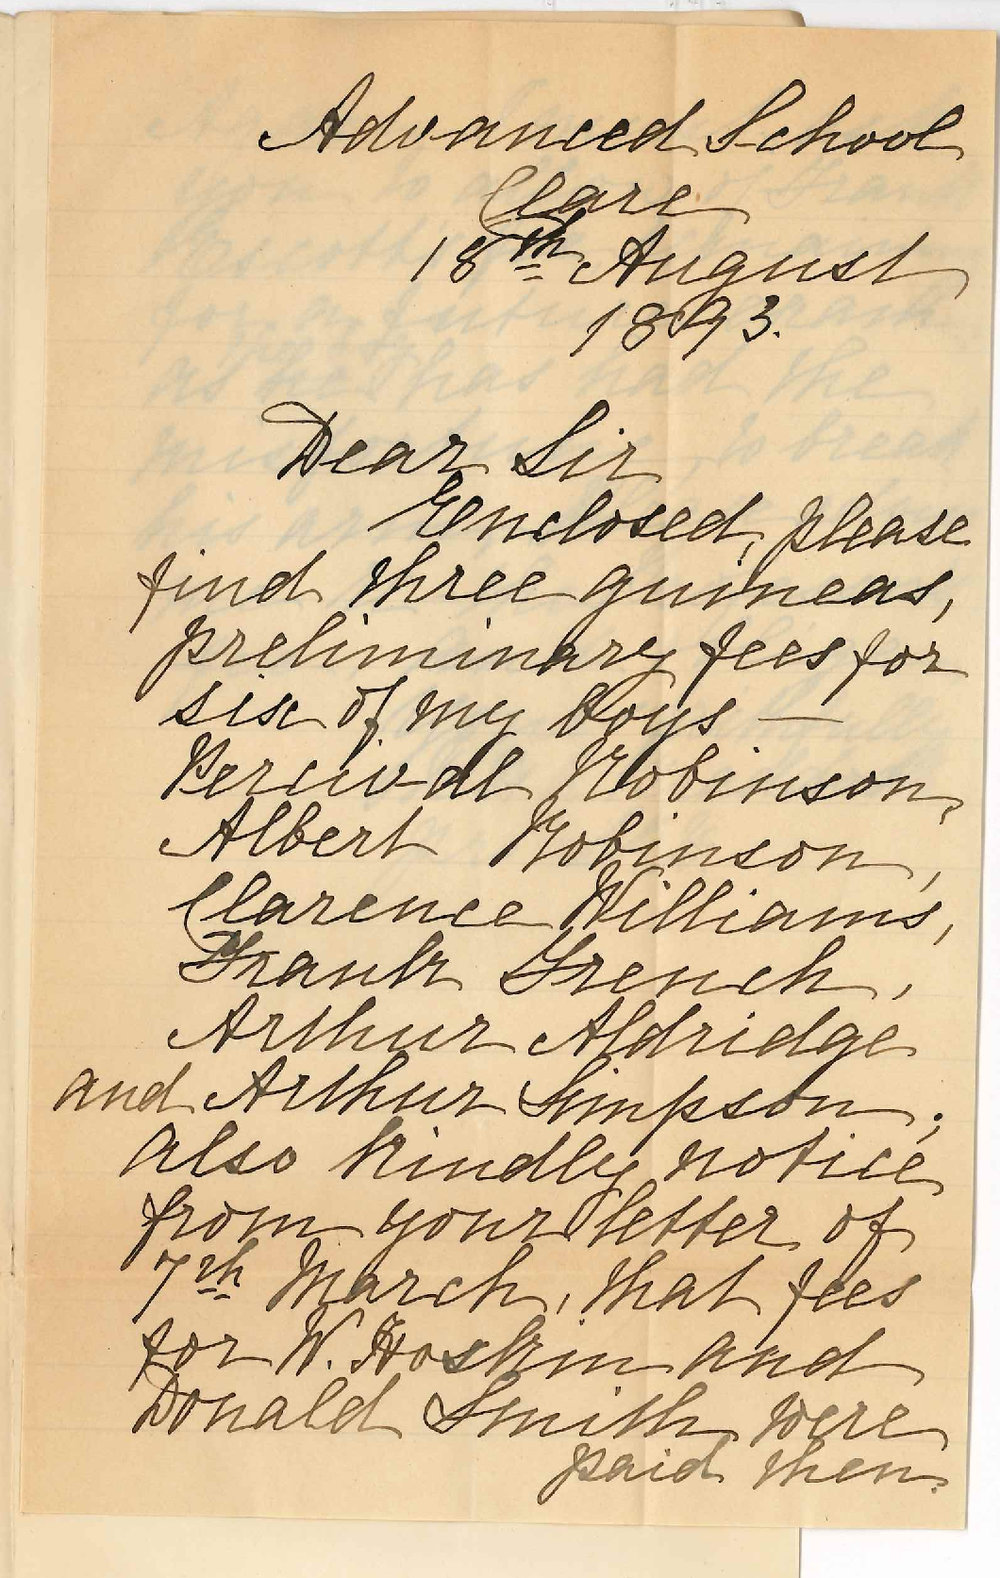 Advanced School
Clare
18th August
1893.
Dear Sir
Enclosed, please
find three guineas,
preliminary fees for
six of my boys —
Percival Robinson,
Albert Robinson,
Clarence Williams,
Frank French,
Arthur Aldridge
and Arthur Simpson;
also kindly notice
from your letter of
7th March, that fees
for W. Hoskin and
Donald Smith were
paid then.